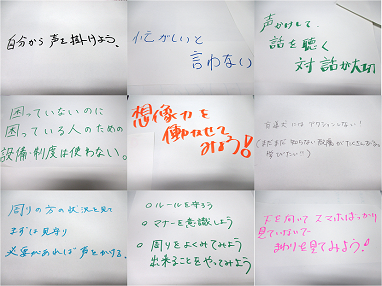 自分から声を掛けよう。
忙がしいと
言わない
声がけして、
話を聴く
対話が大切
困っていないのに
困っている人のための
設備・制度は使わない。
想像力を
働かせて
みよう!
には アクションしない!
(まだまだ 知らない 設備がたくさんあるので
学びたい!!)
周りの方の状況を見て
まずは見守り
必要があれば声をかける。
○ ルールを守ろう
○ マナーを意識しよう
○ 周りをよくみてみよう
出来ることをやってみよう
下を向いてスマホばっかり
見ていないで
まわりを見てみよう!